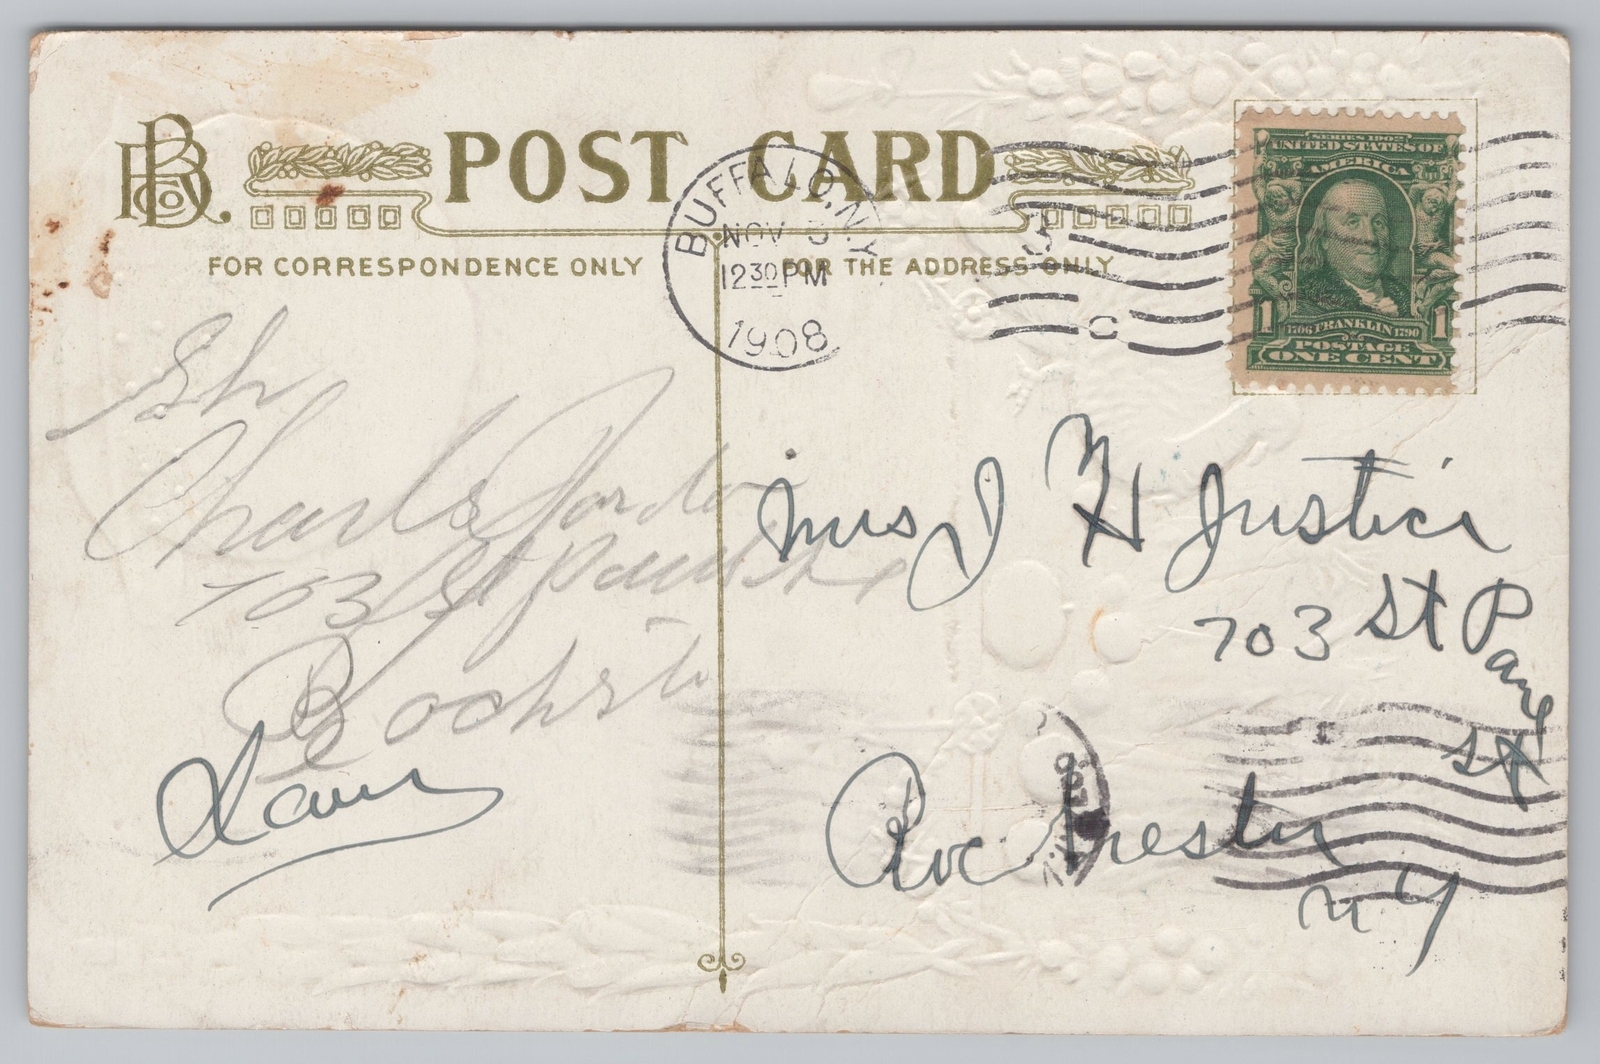 POST CARD
FOR CORRESPONDENCE ONLY
FOR THE ADDRESS ONLY
BUFFALO, N.Y.
NOV
12 30 PM
1908
C
SERIES 1902
UNITED STATES OF
AMERICA
1 1
1706 FRANKLIN 1790
POSTAGE
ONE CENT
Charls Jordo
703 St Paul St
Rochst
Mrs J H Justice
703 St Paul
St
Rochester
N Y